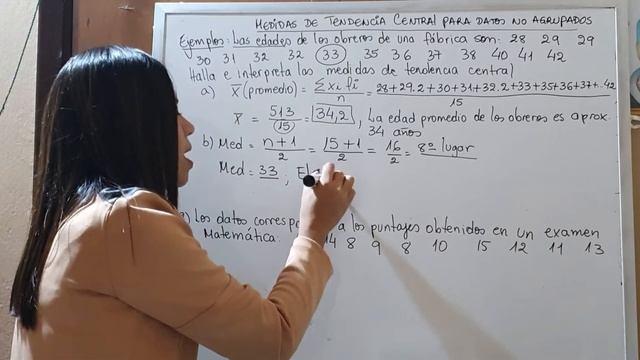 MEDIDAS DE TENDENCIA CENTRAL PARA DATOS NO AGRUPADOS
Ejemplos: Las edades de los obreros de una fábrica son: 28 29 29
30 31 32 32 33 35 36 37 38 40 41 42
Halla e interpreta las medidas de tendencia central
a) x̄ (promedio) = Σxi fi / n = 28+29.2+30+31+32.2+33+35+36+37+..42 / 15
x̄ = 513 / (15) = 34,2 , La edad promedio de los obreros es aprox.
34 años
b) Med = n+1 / 2 = 15+1 / 2 = 16 / 2 = 8º lugar
Med = 33 ; El
Los datos corresp a los puntajes obtenidos en un examen
Matemática: 14 8 9 8 10 15 12 11 13